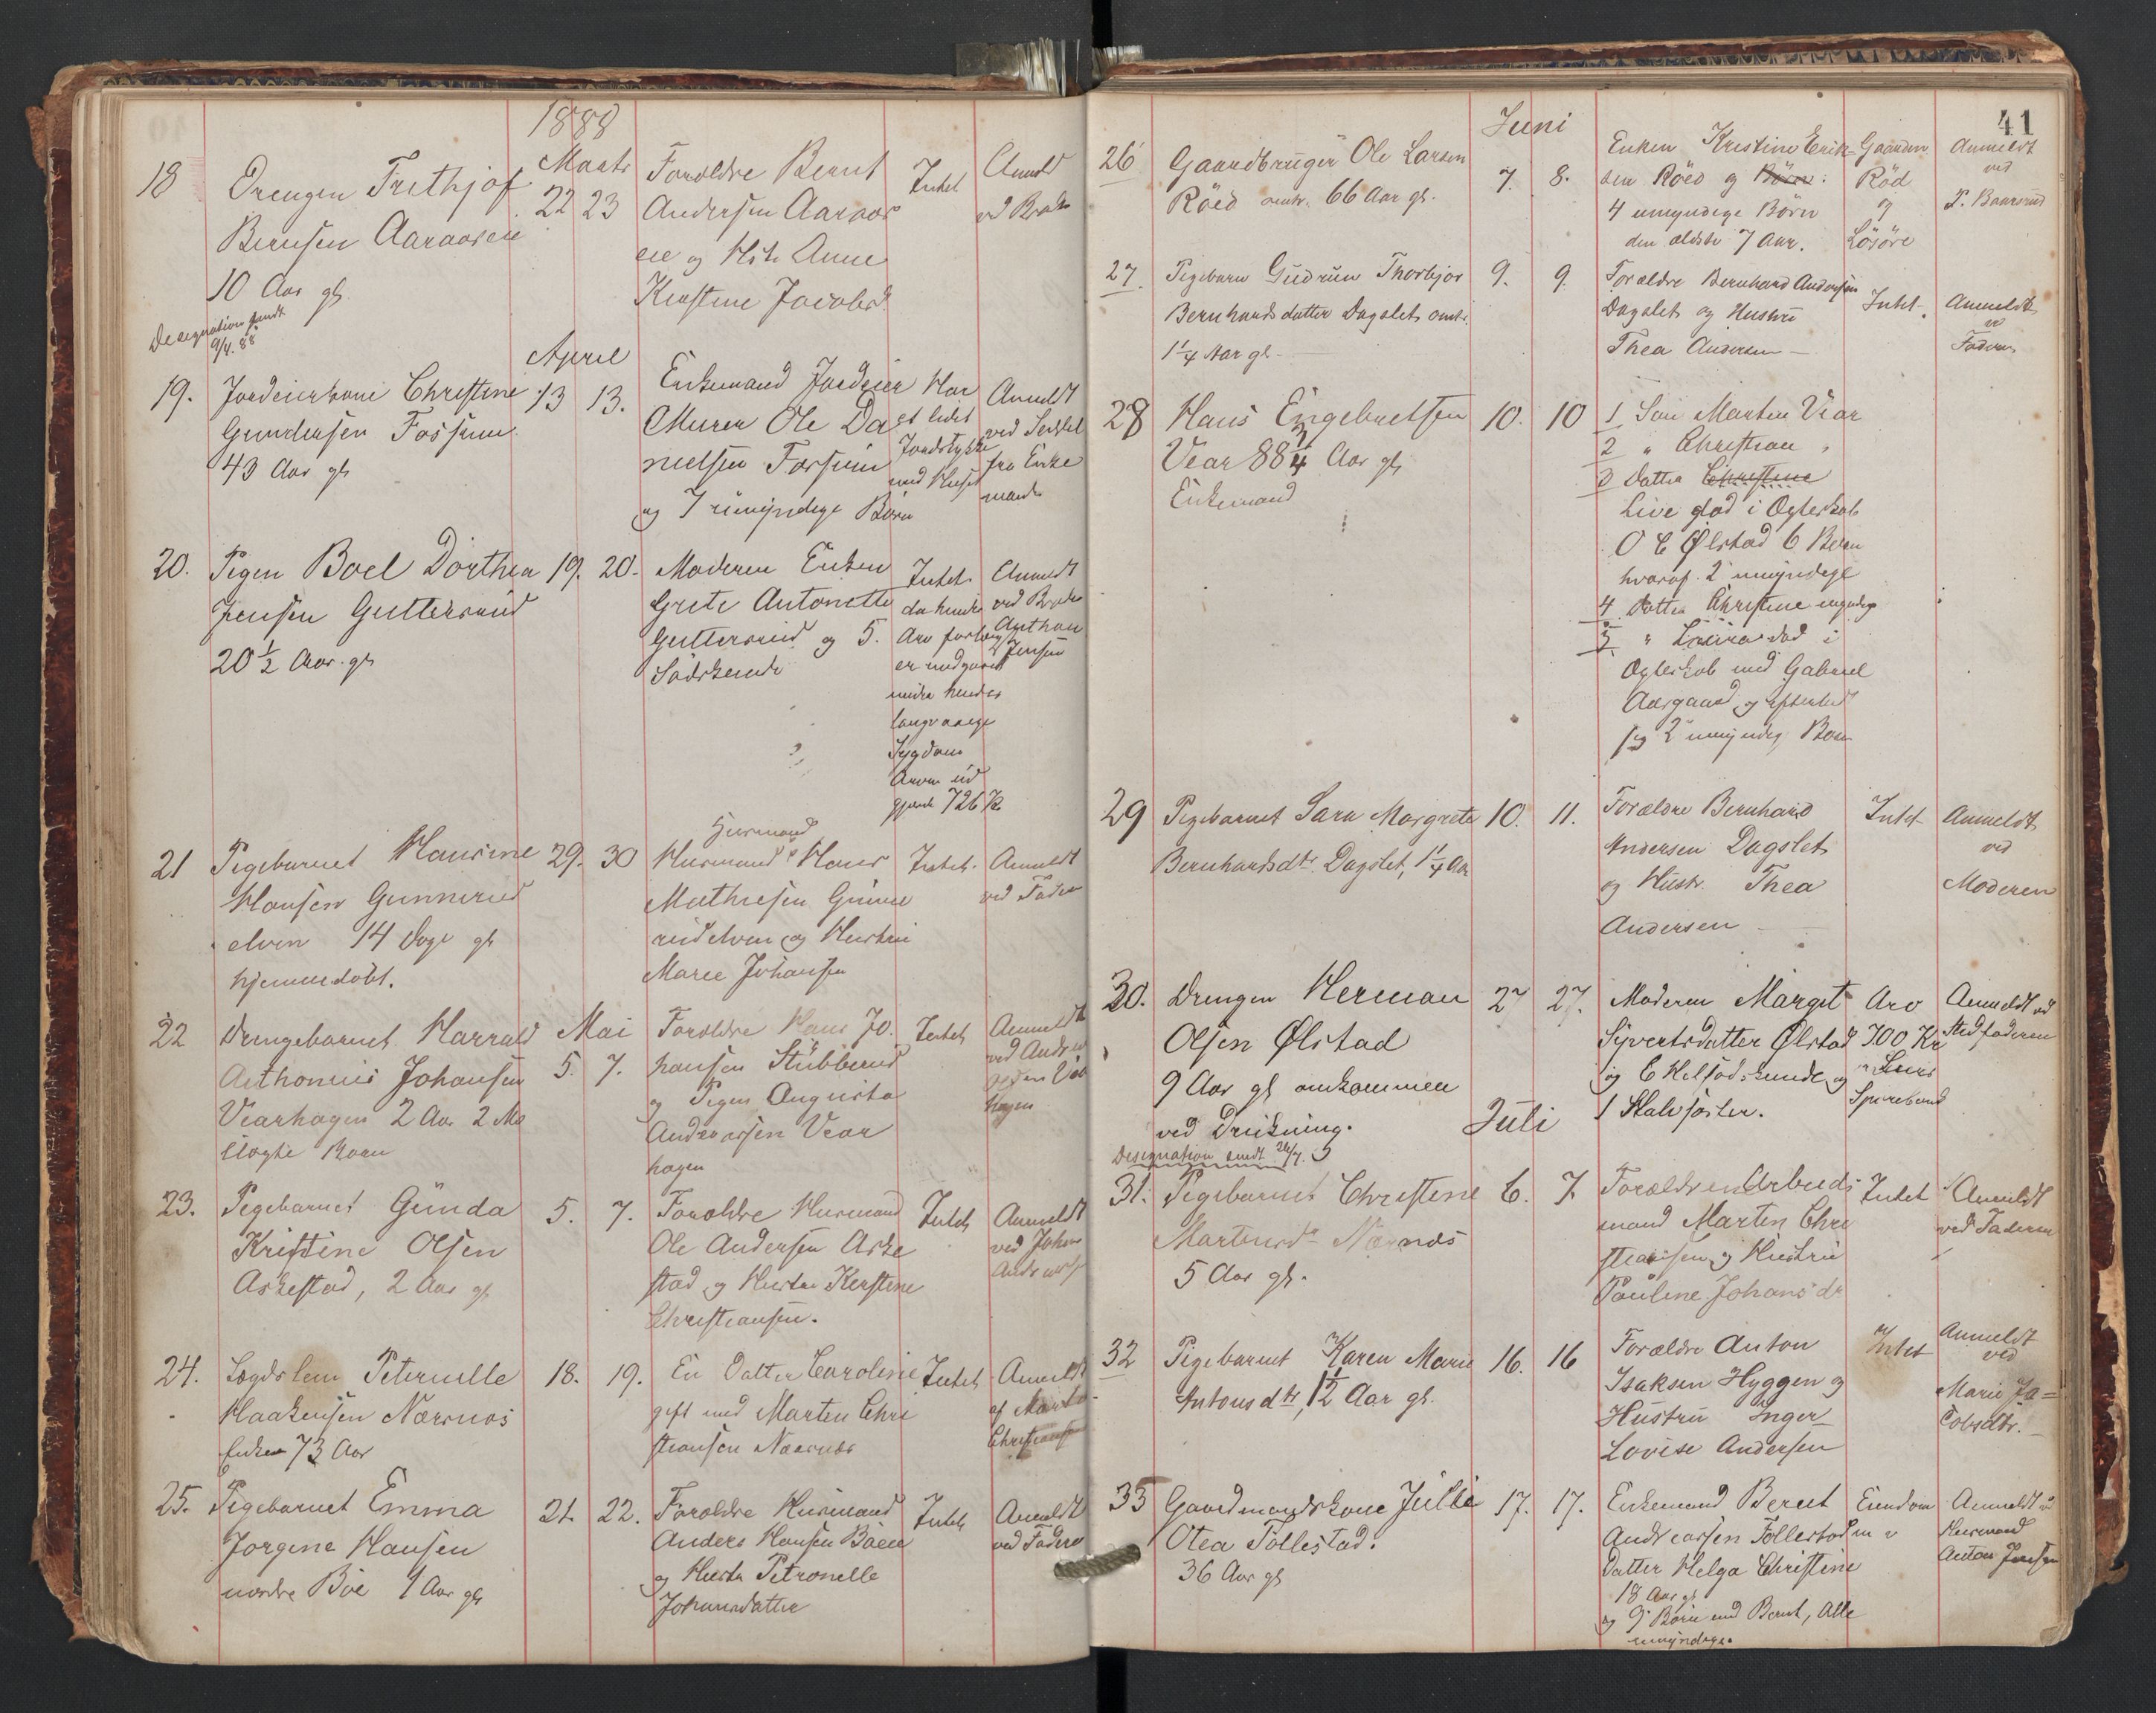 1888
Marts
18 Drengen Frithjof 22 23 Foroldre Bernt Intet Anmeldt
Bernsen Aaraaseie Andersen Aaraas ved
10 Aar gl eie og Anne
Designation sendt Kirstine Jacobsd
9/4. 88
April
19. Jordeierkone Christine 13 13. Enkemand Jordeier Har Anmeldt
Gundersen Fossum Murer Ole Da et lidet ved Seddel
43 Aar gl nielsen Fossum Jordstykke fra Enke
og 7 umyndige Børn med Huset mand
20. Pigen Boel Dorthea 19. 20. Moderen Enken Intet Anmeldt
Jensen Guttersrud Grete Antonette da hendes ved Broder
20 1/2 Aar gl Guttersrud og 5. Arv Anthon
Sødskende er medgaaet Jensen
under hendes
langvarige
Sygdom
Arven ud
gjorde 726 Kr
Husmand
21 Pigebarnet Hansine 29. 30 Husmand Hans Intet Anmeldt
Hansen Gunnerud Mathiesen Gunne ved Fader
elven 14 Dage gl rudelven og Hustru
hjemmedøbt. Marie Johansen
22 Drengebarnet Harrald Mai Foroldre Hans Jo Intet Anmeldt
Anthonius Johansen 5. 7. hansen Stubberud
Vearhagen 2 Aar 2 Md og Pigen Augusta
Uægte Barn Andreassen Vear hagen
hagen
23. Pigebarnet Gunda 5. 7. Foroldre Husmand Intet Anmeldt
Kristine Olsen Ole Andersen Aske ved Johan
Askestad, 2 Aar gl stad og Hustru Kirstine
Christiansen.
24. Lægdslem Peternelle 18. 19. En Datter Caroline Intet Anmeldt
Haakensen Nærsnes gift med Marten Chri af Marten
Enke 73 Aar stiansen Nærsnes Christiansen
25. Pigebarnet Emma 21. 22. Foroldre Husmand Intet Anmeldt
Jorgine Hansen Anders Hansen Böeie ved Faderen
nordre Böe 1 Aar gl og Hustru Petronelle
Johannesdatter
41
Juni
26 Gaardbruger Ole Larsen 7. 8. Enken Kristine Erik- Gaarden Anmeldt
Röed omtr. 66 Aar gl. sen Röed og Börn: Röd ved
4 umyndige Börn og P. Baarsrud
den ældste 7 Aar. Lösöre
27. Pigebarn Gudrun Thorbjør 9. 9. Forældre Bernhard Andersen Intet. Anmeldt
Bernhardsdatter Dagslet omtr. Dagslet og Hustru v
1 1/4 Aar gl. Thea Andersen Faderen
28 Hans Engebretsen 10. 10 1 Søn Marten Vear
Vear 88 3/4 Aar gl 2 " Christian "
Enkemand 3 Datter Christine
Live død i Egteskab
O C Ølstad 6 Børn
hvoraf 2 umyndige
4 Datter Christine myndig
5 " Laura død i
Egteskab med Gabriel
Aargaard og efterlod
sig 2 umyndig Børn
29 Pigebarnet Sara Margrete 10. 11. Forældre Bernhard Intet Anmeldt
Bernhardsdtr. Dagslet, 1 1/4 Aar Andersen Dagslet ved
og Hustr. Thea Moderen
Andersen
30. Drengen Herman 27 27. Moderen Margit Arv Anmeldt ved
Olsen Ølstad Syvertsdatter Ølstad 700 Kr Stedfaderen
9 Aar gl omkommen og 6 Helsødskende og i Liers
ved Drukning. 1 Halvsøster. Sparebank
Designation sendt 26/7.
Juli
31. Pigebarnet Christine 6. 7. Forældrene Arbeids Intet Anmeldt
Martinsdr Nærsnes mand Marten Chri ved Faderen
5 Aar gl. stiansen og Hustru
Pauline Johansdr
32 Pigebarnet Karen Marie 16. 16 Forældre Anton Intet Anmeldt
Antonsdtr, 1 1/2 Aar gl. Isaksen Hyggen og ved
Hustru Inger Marie Ja=
Lovise Andersen cobsdtr.
33 Gaardmandskone Julie 17. 17. Enkemand Bernt Eiendom Anmeldt v
Otea Tollestad. Andreassen Follestad Husmand
36 Aar gl Datter Helga Christine Anton Jensen
18 Aar gl
og 9 Börn med Bernt, Alle
umyndige.